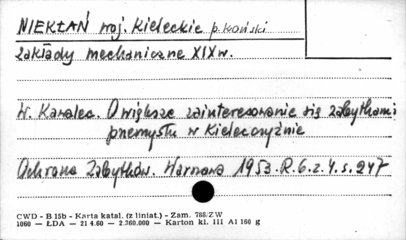 NIEKŁAŃ woj. Kieleckie p. koński
zakłady mechaniczne XIX w.
W. Kawalec. O większe zainteresowanie się zabytkami
przemysłu w Kielecczyźnie
Ochrona Zabytków. Warszawa 1953. R. 6. z. 4. s. 247
CWD - B 15b - Karta katal. (z liniat.) - Zam. 788/ZW
1060 — ŁDA — 21 4.60 — 2.360.000 — Karton kl. III A1 160 g